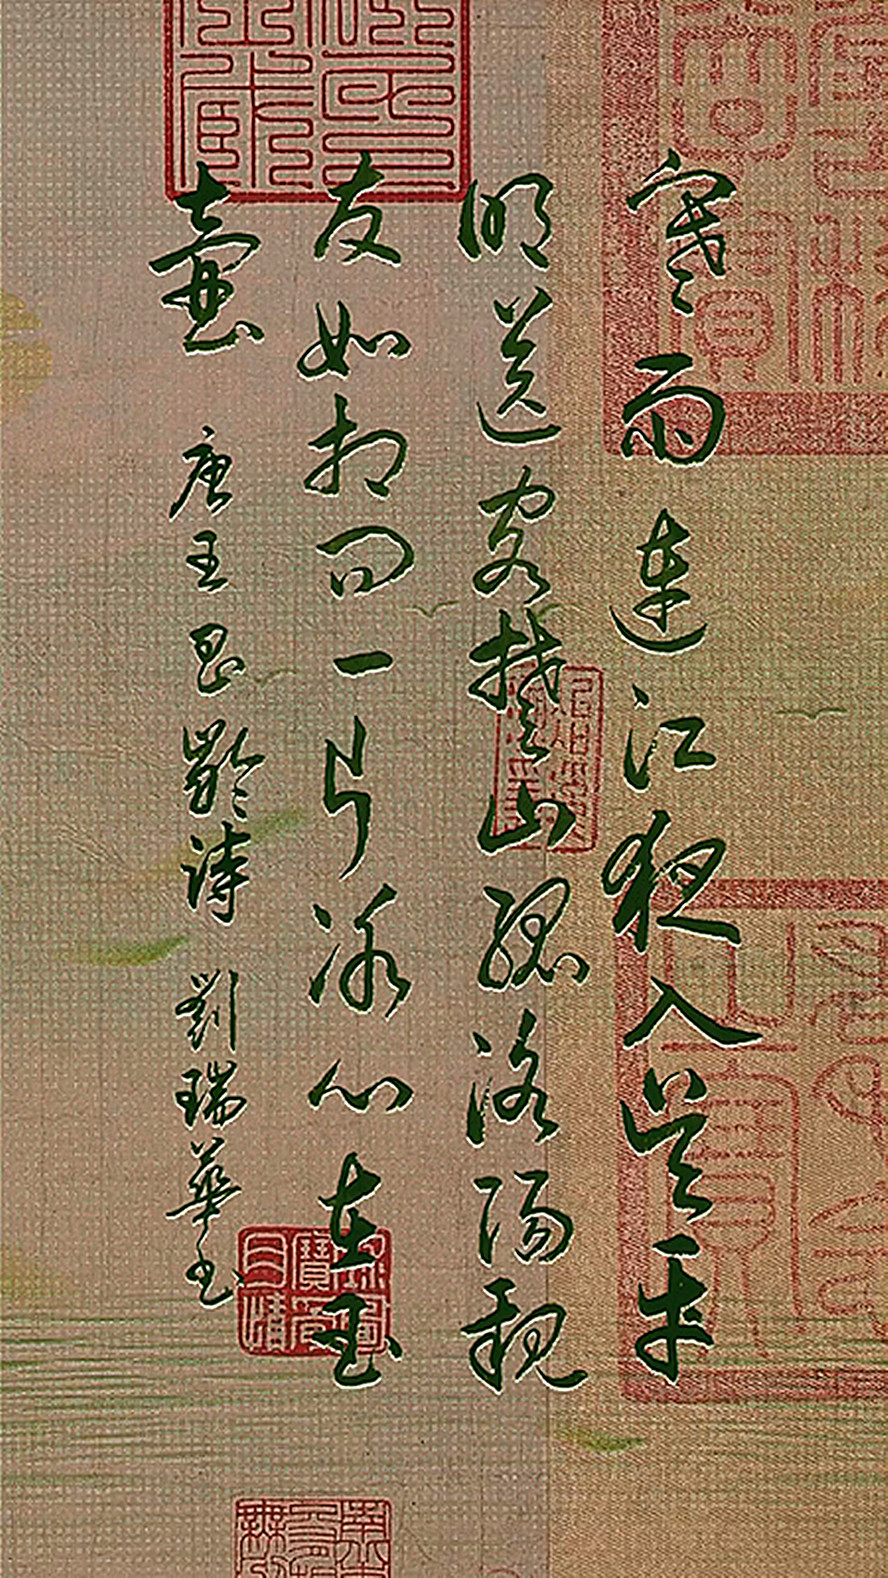 寒雨連江夜入吳平
明送客楚山孤洛陽親
友如相問一片冰心在玉
壺 唐王昌齡詩 劉瑞華書